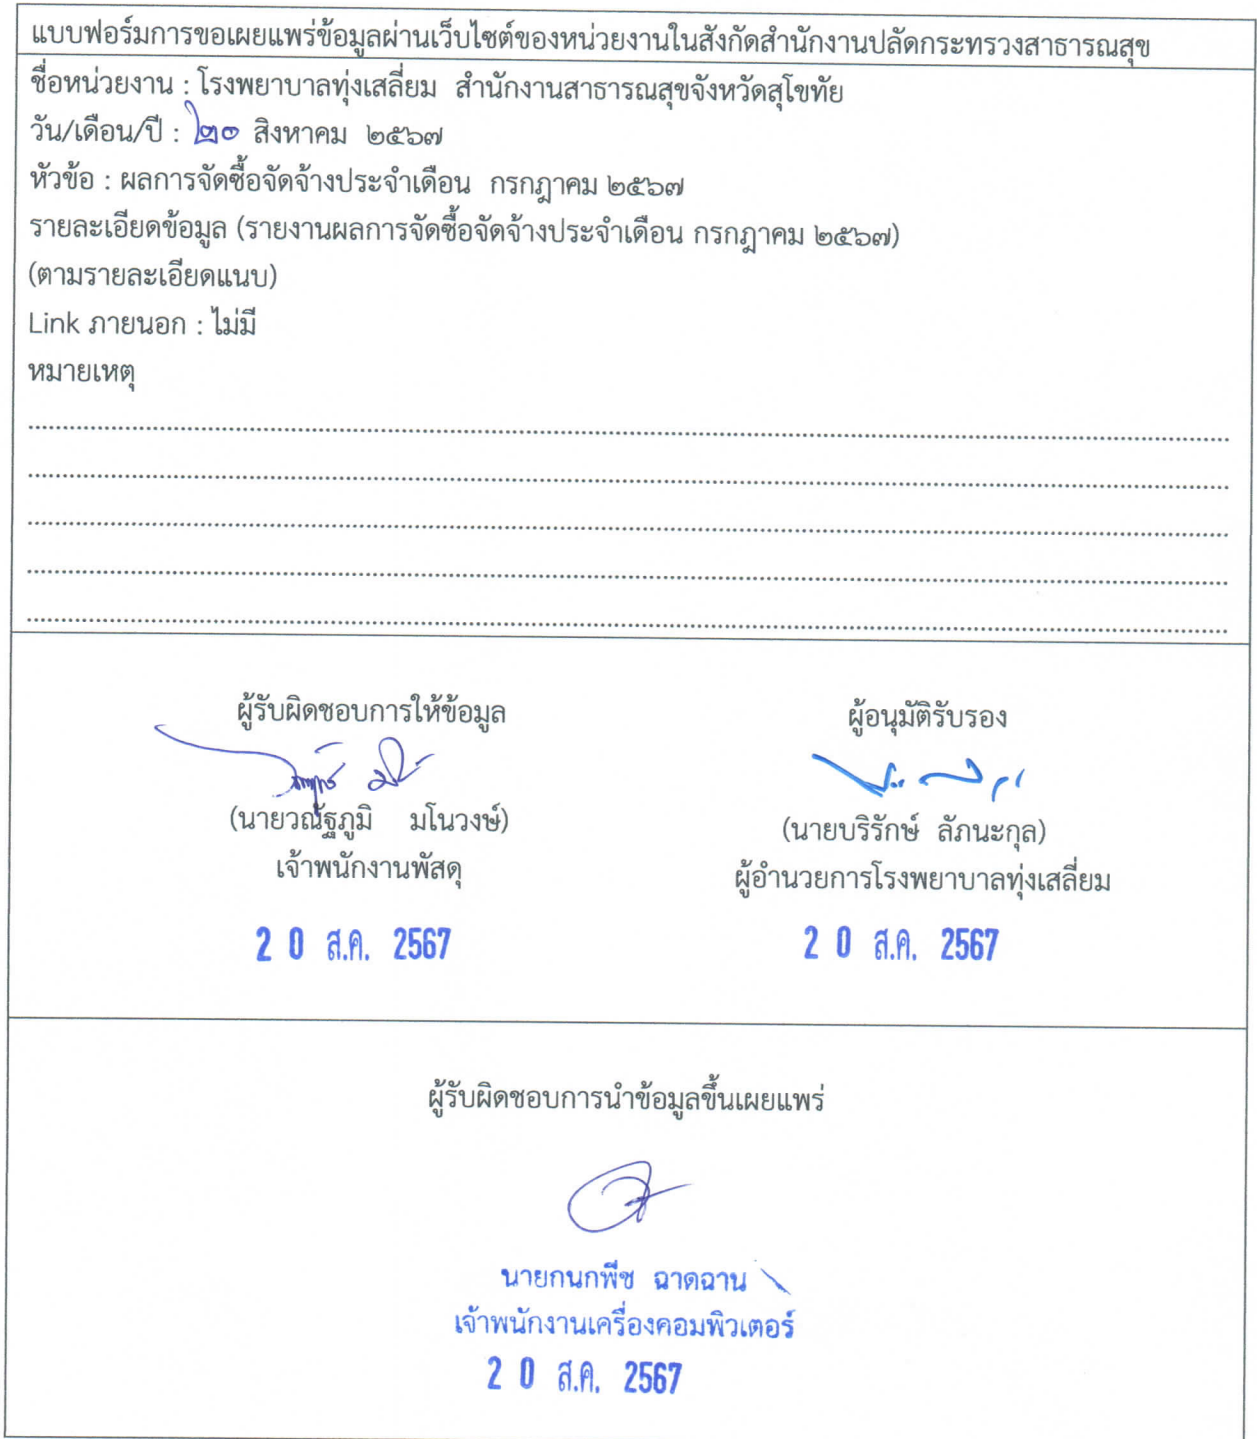 แบบฟอร์มการขอเผยแพร่ข้อมูลผ่านเว็บไซต์ของหน่วยงานในสังกัดสำนักงานปลัดกระทรวงสาธารณสุข
ชื่อหน่วยงาน : โรงพยาบาลทุ่งเสลี่ยม สำนักงานสาธารณสุขจังหวัดสุโขทัย
วัน/เดือน/ปี : ๒๐ สิงหาคม ๒๕๖๗
หัวข้อ : ผลการจัดซื้อจัดจ้างประจำเดือน กรกฎาคม ๒๕๖๗
รายละเอียดข้อมูล (รายงานผลการจัดซื้อจัดจ้างประจำเดือน กรกฎาคม ๒๕๖๗)
(ตามรายละเอียดแนบ)
Link ภายนอก : ไม่มี
หมายเหตุ
ผู้รับผิดชอบการให้ข้อมูล
(นายวณัฐภูมิ มโนวงษ์)
เจ้าพนักงานพัสดุ
2 0 ส.ค. 2567
ผู้อนุมัติรับรอง
(นายบริรักษ์ ลัภนะกุล)
ผู้อำนวยการโรงพยาบาลทุ่งเสลี่ยม
2 0 ส.ค. 2567
ผู้รับผิดชอบการนำข้อมูลขึ้นเผยแพร่
นายกนกพืช ฉาดฉาน
เจ้าพนักงานเครื่องคอมพิวเตอร์
2 0 ส.ค. 2567